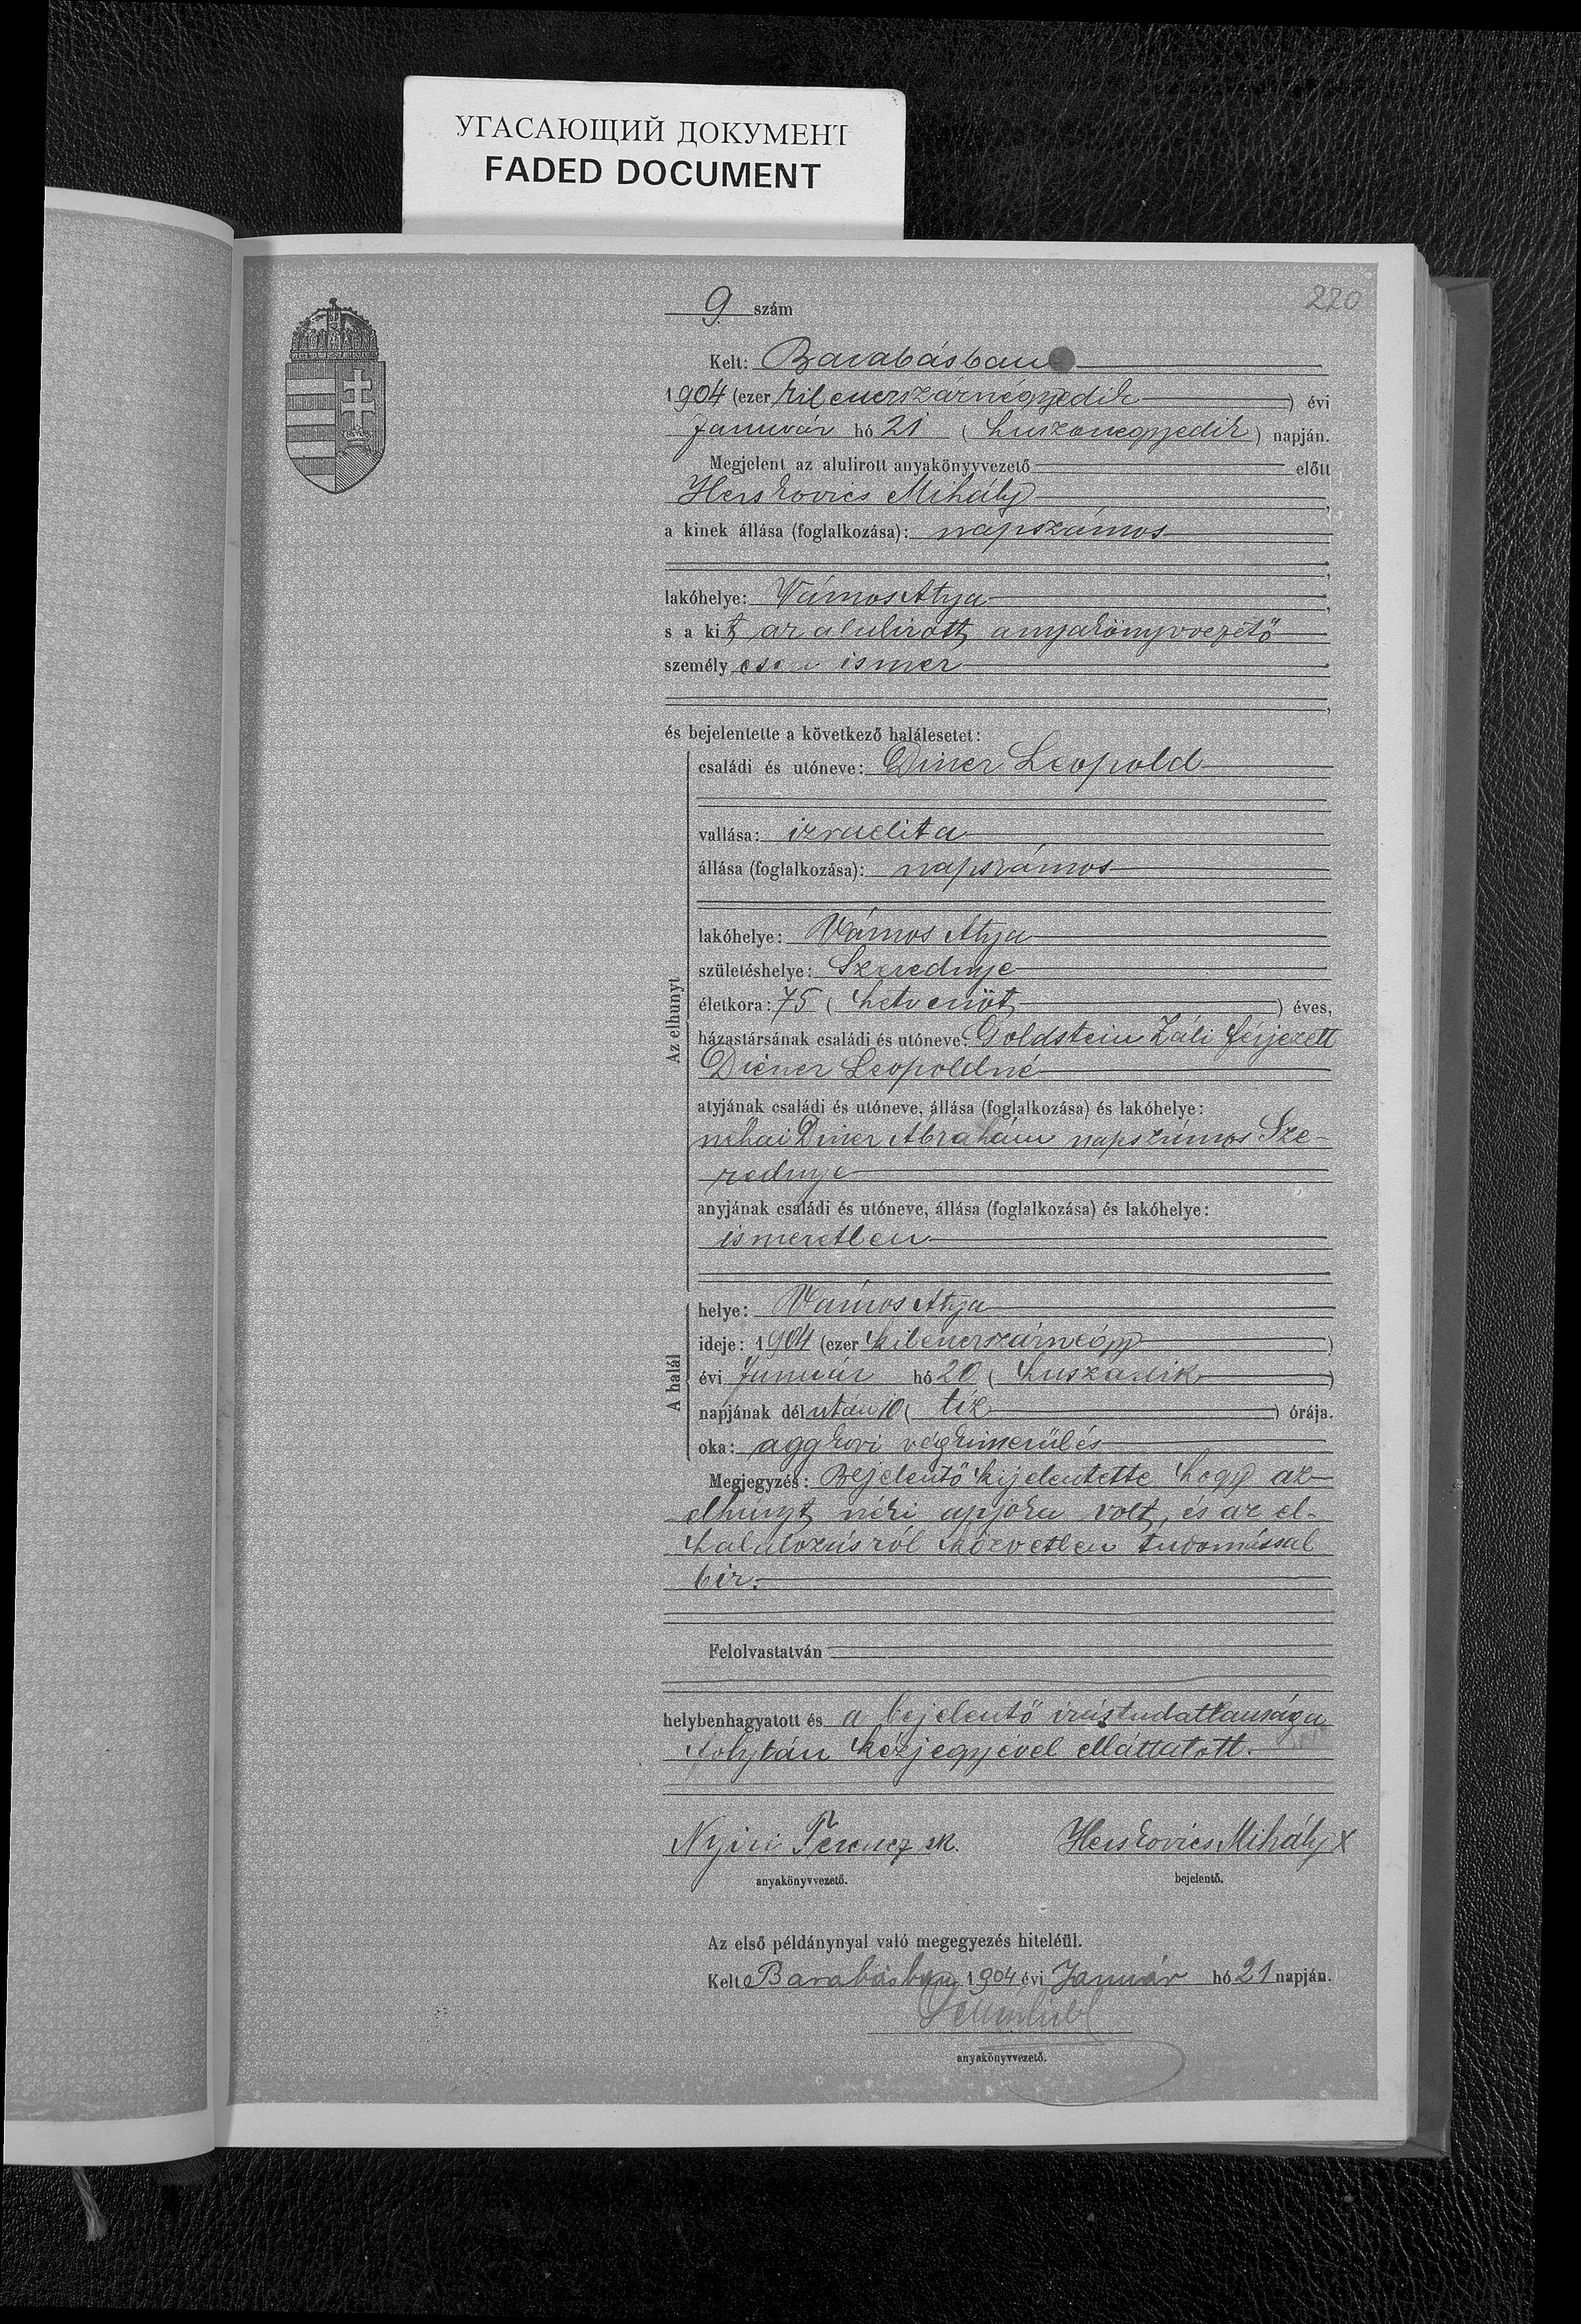 УГАСАЮЩИЙ ДОКУМЕНТ
FADED DOCUMENT
220
9 szám
Kelt: Barabásban
1904 (ezer kilenczszáznégyedik) évi
Január hó 21 (huszonegyedik) napján.
Megjelent az alulirott anyakönyvvezető előtt
Herskovics Mihály,
a kinek állása (foglalkozása): napszámos
lakóhelye: VámosAtya,
s a kit az alulirott anyakönyvvezető
személyesen ismer
és bejelentette a következő halálesetet:
Az elhunyt
családi és utóneve: Diner Leopold
vallása: izraelita
állása (foglalkozása): napszámos
lakóhelye: Vámos Atya
születéshelye: Szerednye
életkora: 75 (hetvenöt) éves,
házastársának családi és utóneve: Goldstein Záli férjezett
Diener Leopoldné
atyjának családi és utóneve, állása (foglalkozása) és lakóhelye:
néhai Diner Abrahám napszámos Sze-
rednye
anyjának családi és utóneve, állása (foglalkozása) és lakóhelye:
ismeretlen
A halál
helye: VámosAtya
ideje: 1904 (ezer kilenczszáznégy)
évi Január hó 20 (huszadik)
napjának délután 10 (tíz) órája.
oka: aggkori végkimerülés
Megjegyzés: Bejelentő kijelentette hogy az
elhunyt néki apjoka volt, és az el-
halálozásról közvetlen tudomással
bir.
Felolvastatván
helybenhagyatott és a bejelentő irástudatlansága
folytán kézjegyével elláttatott.
Nyiri Ferencz sk. Herskovics Mihály x
anyakönyvvezető. bejelentő.
Az első példánynyal való megegyezés hiteléül.
Kelt Barabásban 1904 évi Január hó 21 napján.
anyakönyvvezető.